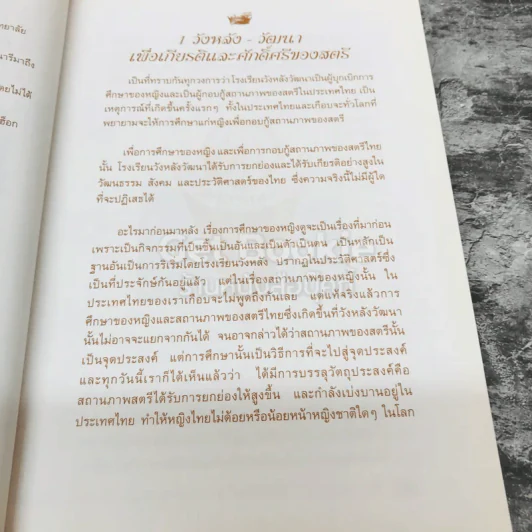 ทยาลัย
นารีมาถึง
โดยไม่ได้
ฮือก
1 วังหลัง - วัฒนา
เพื่อเกียรติและศักดิ์ศรีของสตรี
เป็นที่ทราบกันทุกวงการว่าโรงเรียนวังหลังวัฒนาเป็นผู้บุกเบิกการ
ศึกษาของหญิงและเป็นผู้กอบกู้สถานภาพของสตรีในประเทศไทย เป็น
เหตุการณ์ที่เกิดขึ้นครั้งแรกๆ ทั้งในประเทศไทยและเกือบจะทั่วโลกที่
พยายามจะให้การศึกษาแก่หญิงเพื่อกอบกู้สถานภาพของสตรี
เพื่อการศึกษาของหญิง และเพื่อการกอบกู้สถานภาพของสตรีไทย
นั้น โรงเรียนวังหลังวัฒนาได้รับการยกย่องและได้รับเกียรติอย่างสูงใน
วัฒนธรรม สังคม และประวัติศาสตร์ของไทย ซึ่งความจริงนี้ไม่มีผู้ใด
ที่จะปฏิเสธได้
อะไรมาก่อนมาหลัง เรื่องการศึกษาของหญิงดูจะเป็นเรื่องที่มาก่อน
เพราะเป็นกิจกรรมที่เป็นชิ้นเป็นอันและเป็นตัวเป็นตน เป็นหลักเป็น
ฐานอันเป็นการริเริ่มโดยโรงเรียนวังหลัง ปรากฏในประวัติศาสตร์ซึ่ง
เป็นที่ประจักษ์กันอยู่แล้ว แต่ในเรื่องสถานภาพของหญิงนั้น ใน
ประเทศไทยของเราเกือบจะไม่พูดถึงกันเลย แต่แท้จริงแล้วการ
ศึกษาของหญิงและสถานภาพของสตรีไทยซึ่งเกิดขึ้นที่วังหลังวัฒนา
นั้นไม่อาจจะแยกจากกันได้ จนอาจกล่าวได้ว่าสถานภาพของสตรีนั้น
เป็นจุดประสงค์ แต่การศึกษานั้นเป็นวิธีการที่จะไปสู่จุดประสงค์
และทุกวันนี้เราก็ได้เห็นแล้วว่า ได้มีการบรรลุวัตถุประสงค์คือ
สถานภาพสตรีได้รับการยกย่องให้สูงขึ้น และกำลังเบ่งบานอยู่ใน
ประเทศไทย ทำให้หญิงไทยไม่ด้อยหรือน้อยหน้าหญิงชาติใดๆ ในโลก